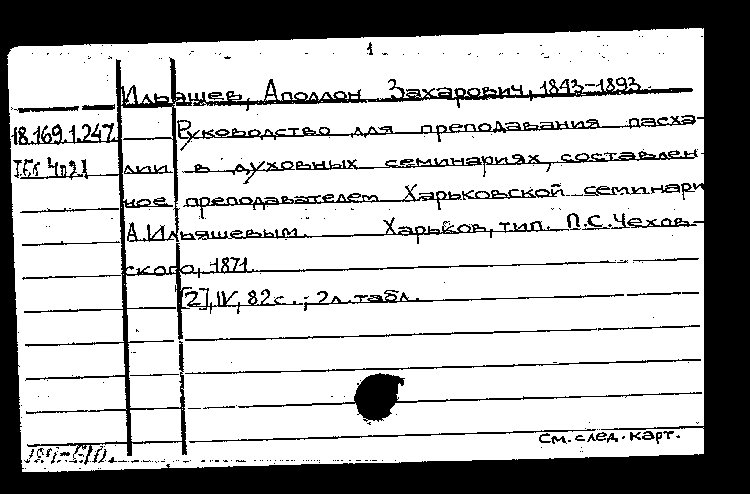 1
Ильяшев, Аполлон Захарович, 1843-1893.
18.169.1.247 Руководство для преподавания пасха-
лии в духовных семинариях, составлен-
ное преподавателем Харьковской семинари
А.Ильяшевым. Харьков, тип. П.С.Чехов-
ского, 1871.
[2], IV, 82 с.; 2 л. табл.
См. след. карт.